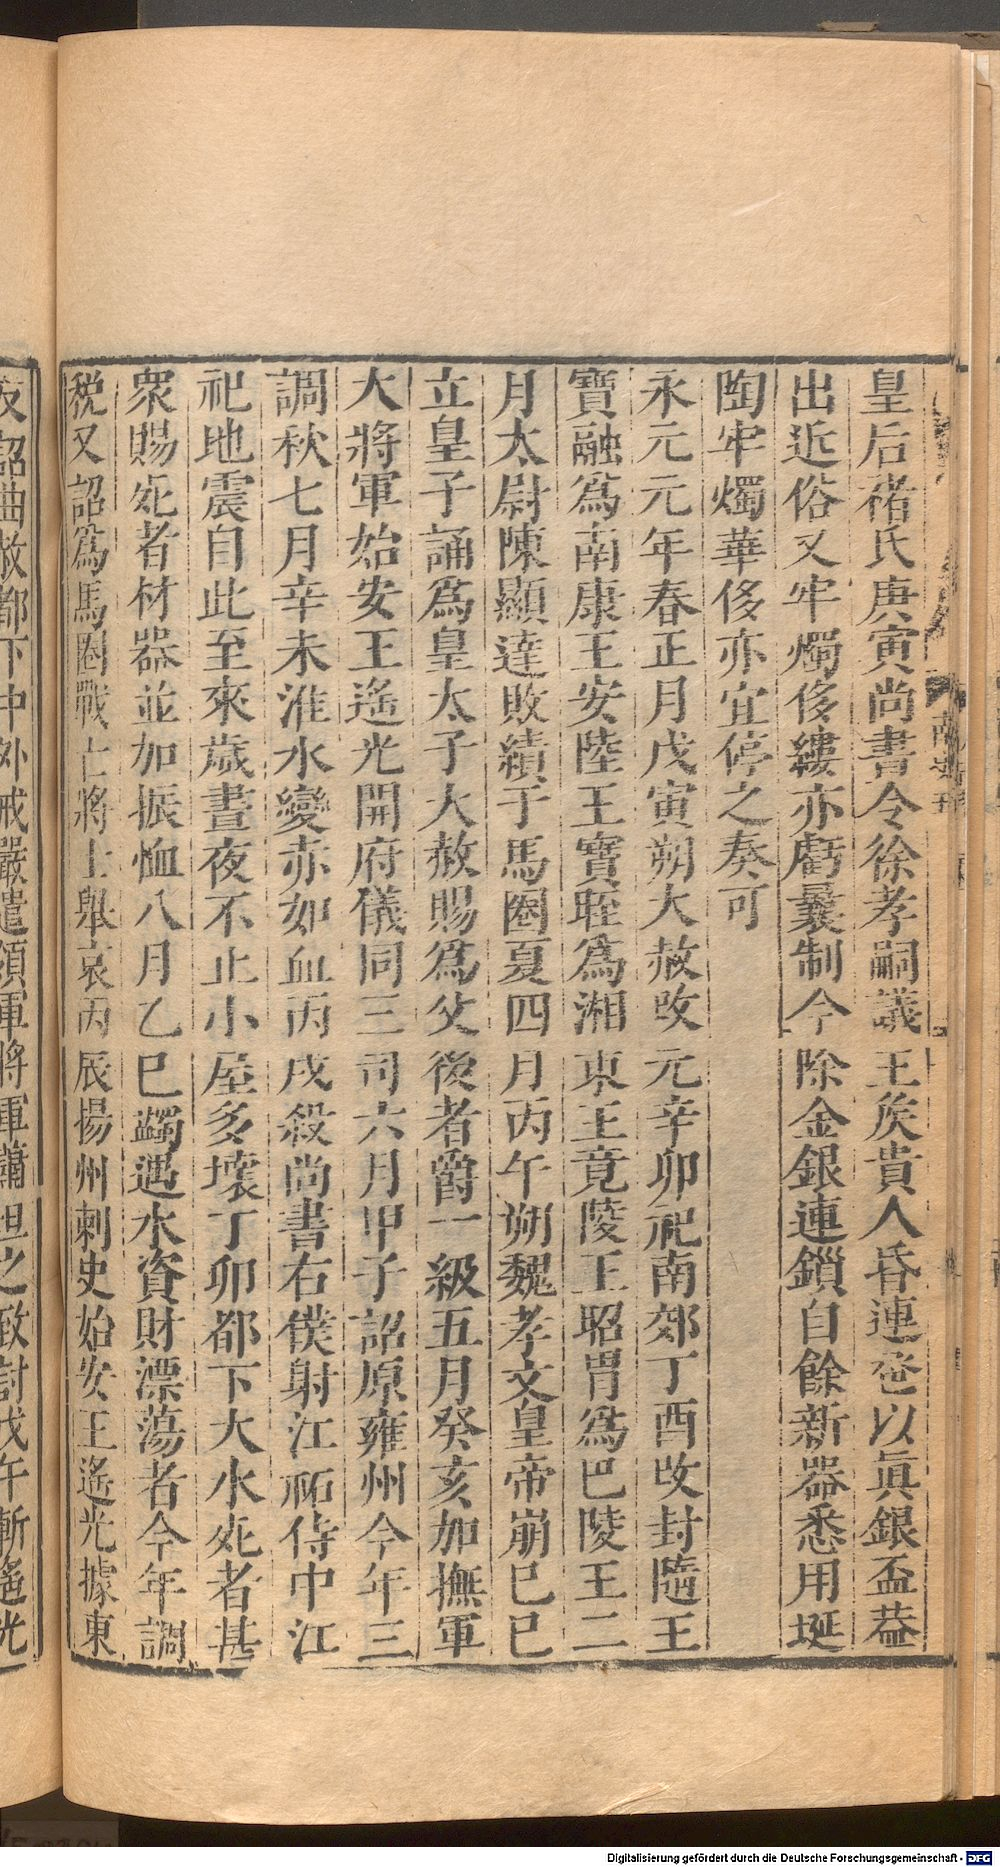 皇后褚氏庚寅尚書令徐孝嗣議王侯貴人昏連卺以眞銀盃葢
出近俗又牢燭侈縷亦虧曩制今除金銀連鎖自餘新器悉用埏
陶牢燭華侈亦宜停之奏可
永元元年春正月戊寅朔大赦改元辛卯祀南郊丁酉改封隨王
寶融爲南康王安陸王寶晊爲湘東王竟陵王昭胄爲巴陵王二
月太尉陳顯達敗績于馬圈夏四月丙午朔魏孝文皇帝崩巳巳
立皇子誦爲皇太子大赦賜爲父後者爵一級五月癸亥加撫軍
大將軍始安王遙光開府儀同三司六月甲子詔原雍州今年三
調秋七月辛未淮水變赤如血丙戌殺尚書右僕射江祏侍中江
祀地震自此至來歲晝夜不止小屋多壞丁卯都下大水死者甚
衆賜死者材器並加振恤八月乙巳蠲遇水資財漂蕩者今年調
稅又詔爲馬圈戰亡將士舉哀丙辰揚州刺史始安王遙光據東
反詔曲赦都下中外戒嚴遣領軍將軍蕭坦之致討戊午斬遙光
南史五
Digitalisierung gefördert durch die Deutsche Forschungsgemeinschaft - DFG